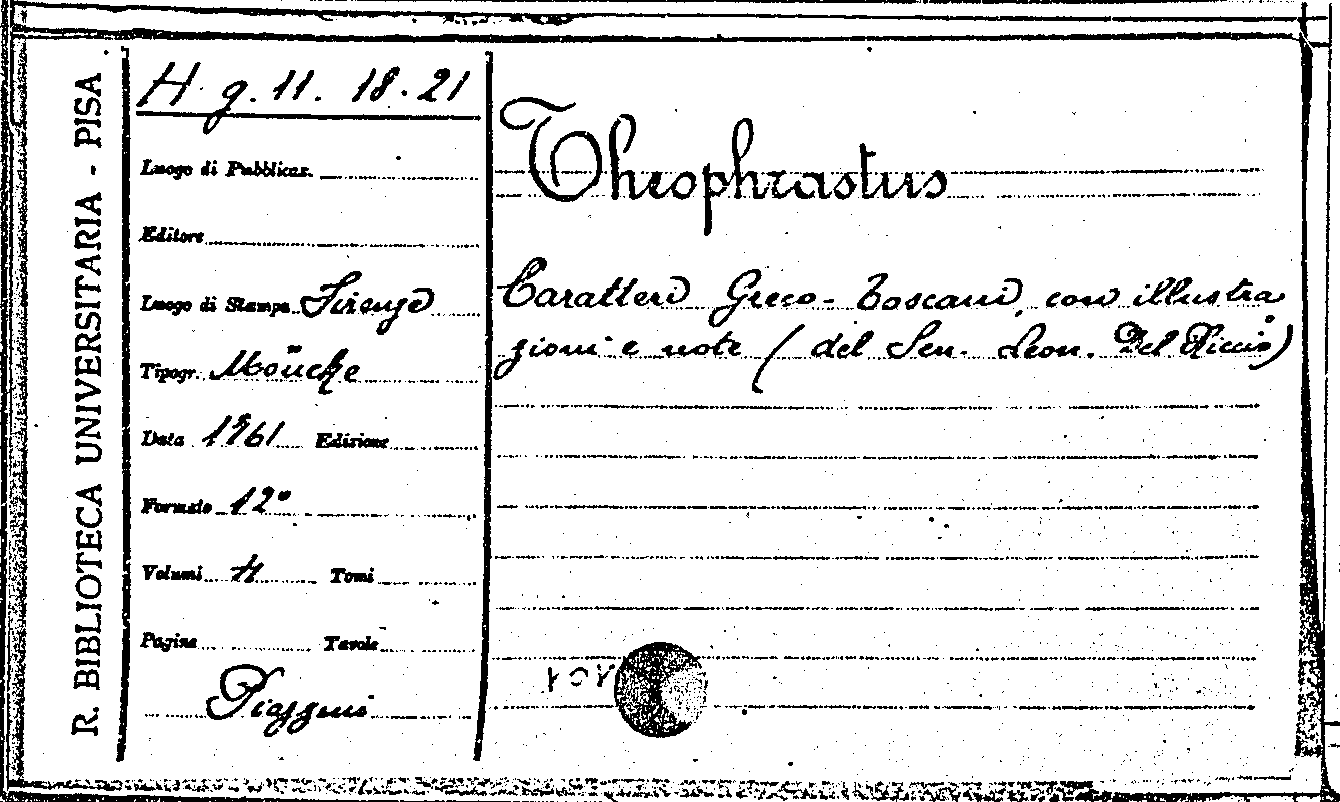 R. BIBLIOTECA UNIVERSITARIA - PISA
H. g. 11. 18. 21
Luogo di Pubblicaz.
Editore
Luogo di Stampa Firenze
Tipogr. Moücke
Data 1761 Edizione
Formato 12°
Volumi 4 Tomi
Pagine Tavole
Piazzini
Theophrastus
Caratteri Greco-Toscani, con illustra
zioni e note (del Sen. Leon. Del Riccio)